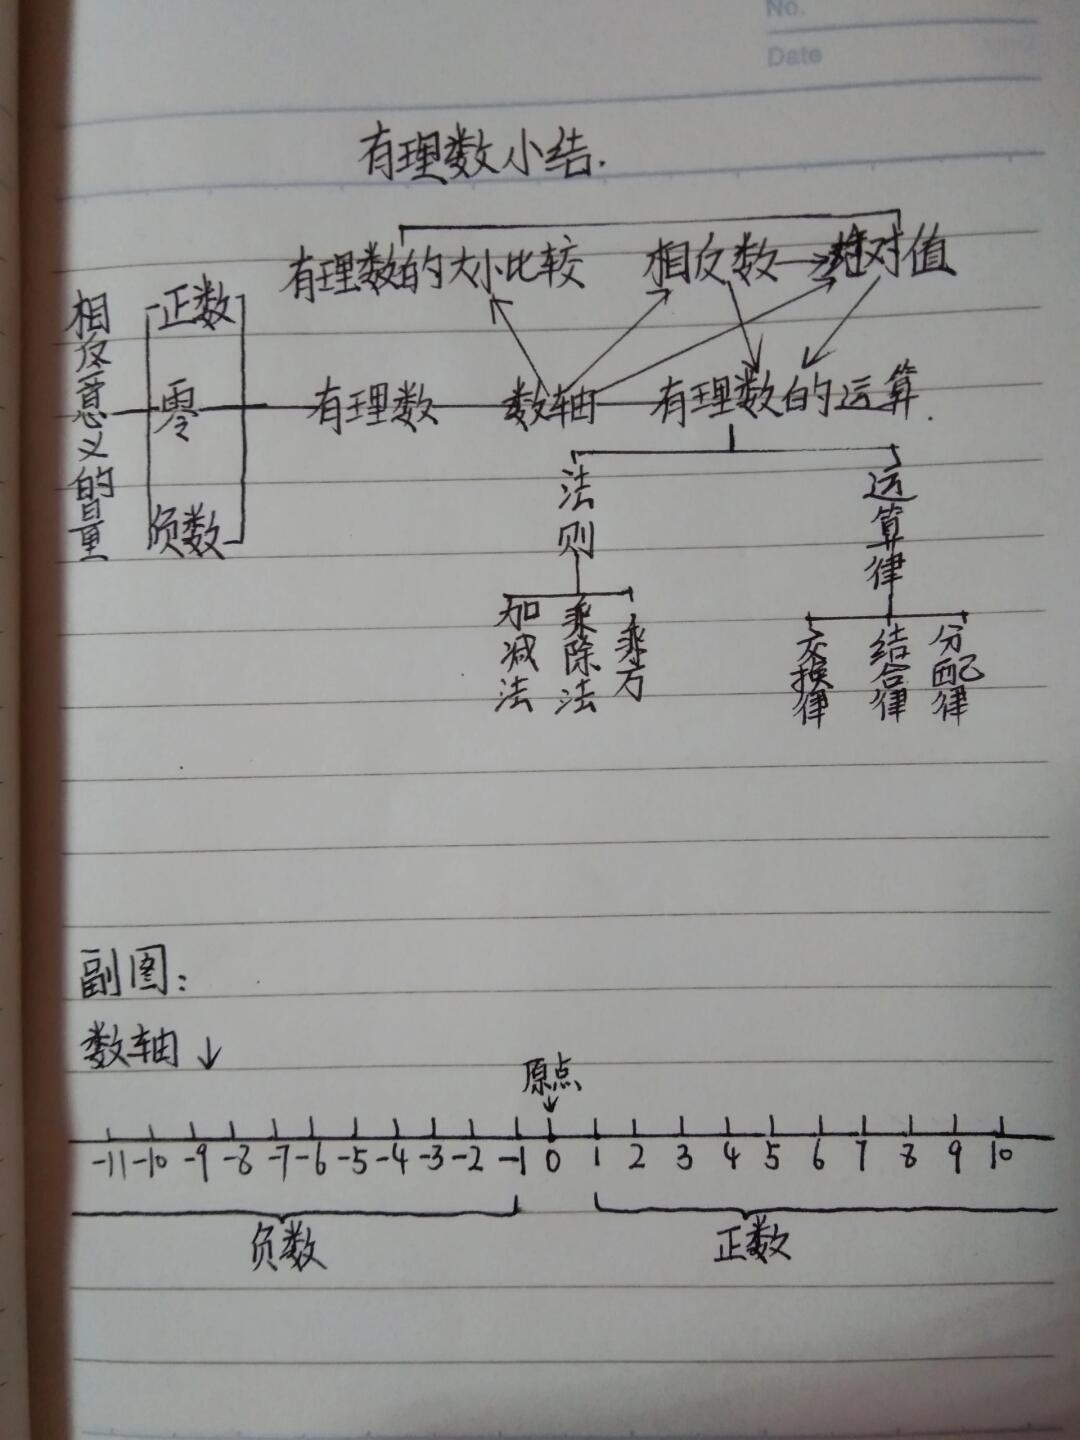 No.
Date
有理数小结.
有理数的大小比较 相反数 绝对值
相反意义的量
正数
零
负数
有理数 数轴 有理数的运算.
法则
运算律
加减法
乘除法
乘方
交换律
结合律
分配律
副图:
数轴↓
原点
-11 -10 -9 -8 -7 -6 -5 -4 -3 -2 -1 0 1 2 3 4 5 6 7 8 9 10
负数 正数